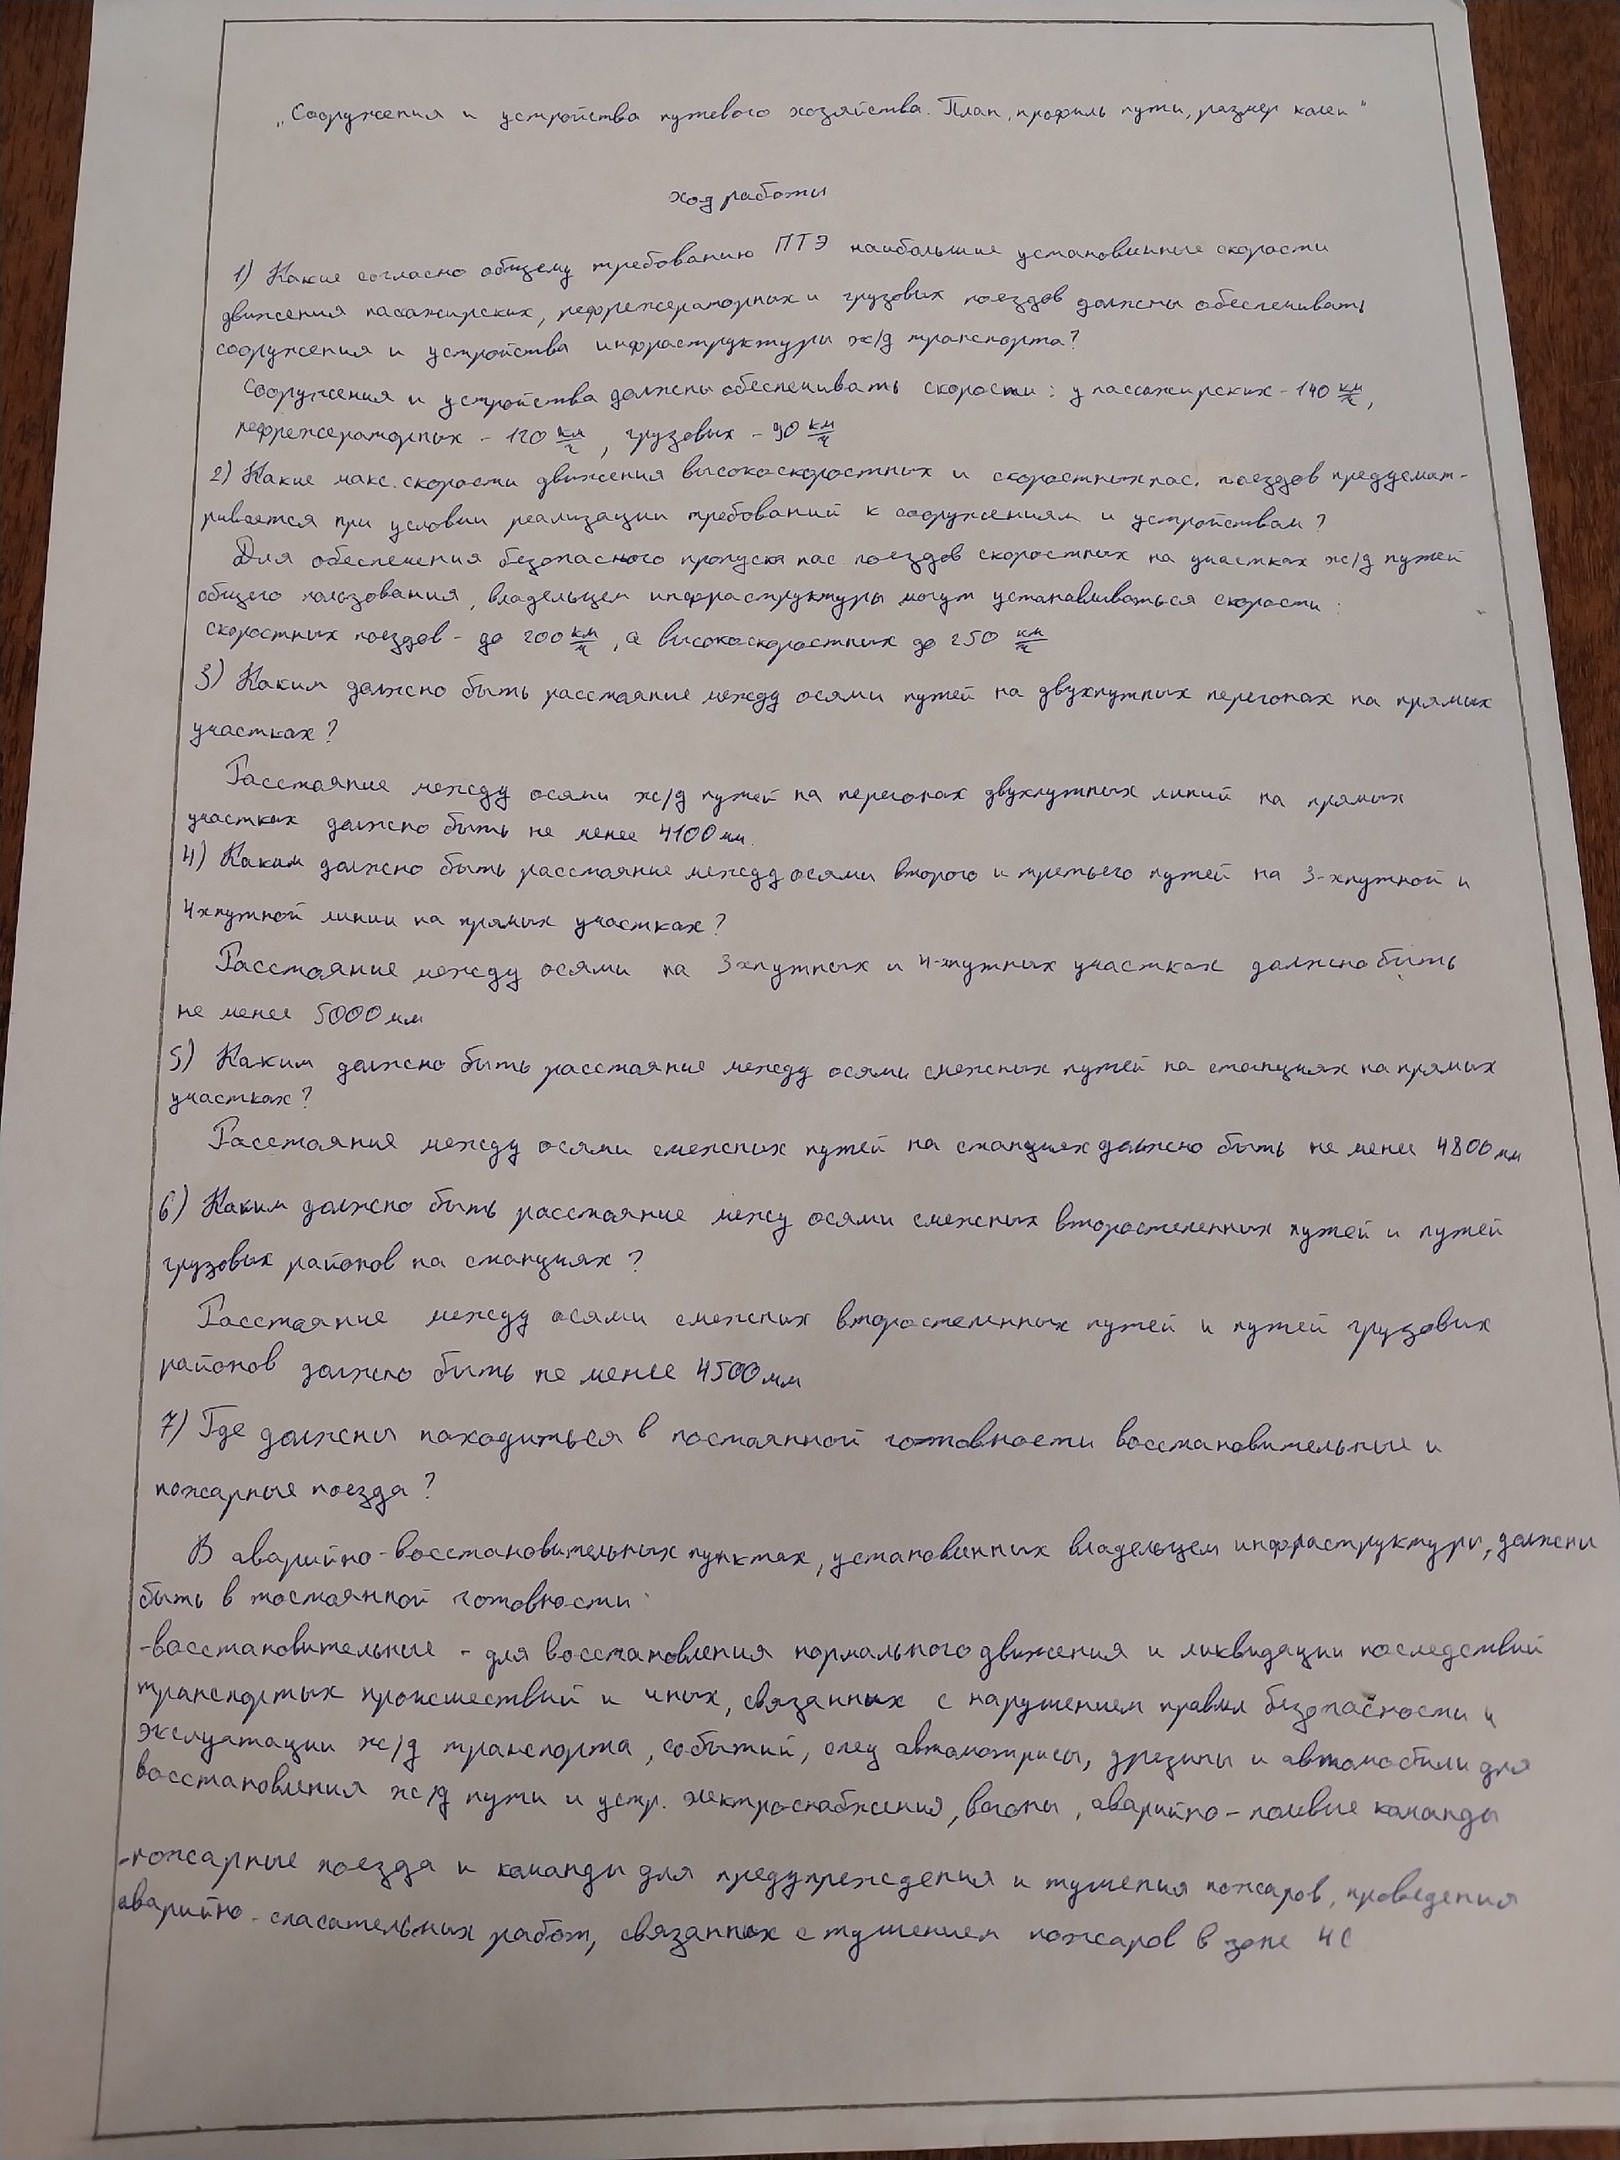 „Сооружения и устройства путевого хозяйства. План, профиль пути, размер колеи"
Ход работы
1) Какие согласно общему требованию ПТЭ наибольшие установленные скорости
движения пассажирских, рефрежераторных и грузовых поездов должны обеспечивать
сооружения и устройства инфраструктуры ж/д транспорта?
Сооружения и устройства должны обеспечивать скорости: у пассажирских - 140 км/ч,
рефрежераторных - 120 км/ч, грузовых - 90 км/ч
2) Какие макс. скорости движения высокоскоростных и скоростных пас. поездов предусмат-
ривается при условии реализации требований к сооружениям и устройствам?
Для обеспечения безопасного пропуска пас. поездов скоростных на участках ж/д путей
общего пользования, владельцем инфраструктуры могут устанавливаться скорости:
скоростных поездов - до 200 км/ч, а высокоскоростных до 250 км/ч
3) Каким должно быть расстояние между осями путей на двухпутных перегонах на прямых
участках?
Расстояние между осями ж/д путей на перегонах двухпутных линий на прямых
участках должно быть не менее 4100 мм.
4) Каким должно быть расстояние между осями второго и третьего путей на 3-хпутной и
4хпутной линии на прямых участках?
Расстояние между осями на 3хпутных и 4-хпутных участках должно быть
не менее 5000 мм
5) Каким должно быть расстояние между осями смежных путей на станциях на прямых
участках?
Расстояние между осями смежних путей на станциях должно быть не менее 4800 мм
6) Каким должно быть расстояние межу осями смежных второстепенных путей и путей
грузовых районов на станциях?
Расстояние между осями смежних второстепенных путей и путей грузовых
районов должно быть не менее 4500 мм
7) Где должны находиться в постоянной готовности восстановительные и
пожарные поезда?
В аварийно-восстановительных пунктах, установленных владельцем инфраструктуры, должны
быть в постоянной готовности:
-восстановительные - для восстановления нормального движения и ликвидации последствий
транспортых происшествий и иных, связанных с нарушением правил безопасности и
эксплуатации ж/д транспорта, событий, спец автомотрисы, дрезины и автомобили для
восстановления ж/д пути и устр. электроснабжения, вагоны, аварийно-полевые команды
-пожарные поезда и команды для предупреждения и тушения пожаров, проведения
аварийно-спасательных работ, связанных с тушением пожаров в зоне ЧС